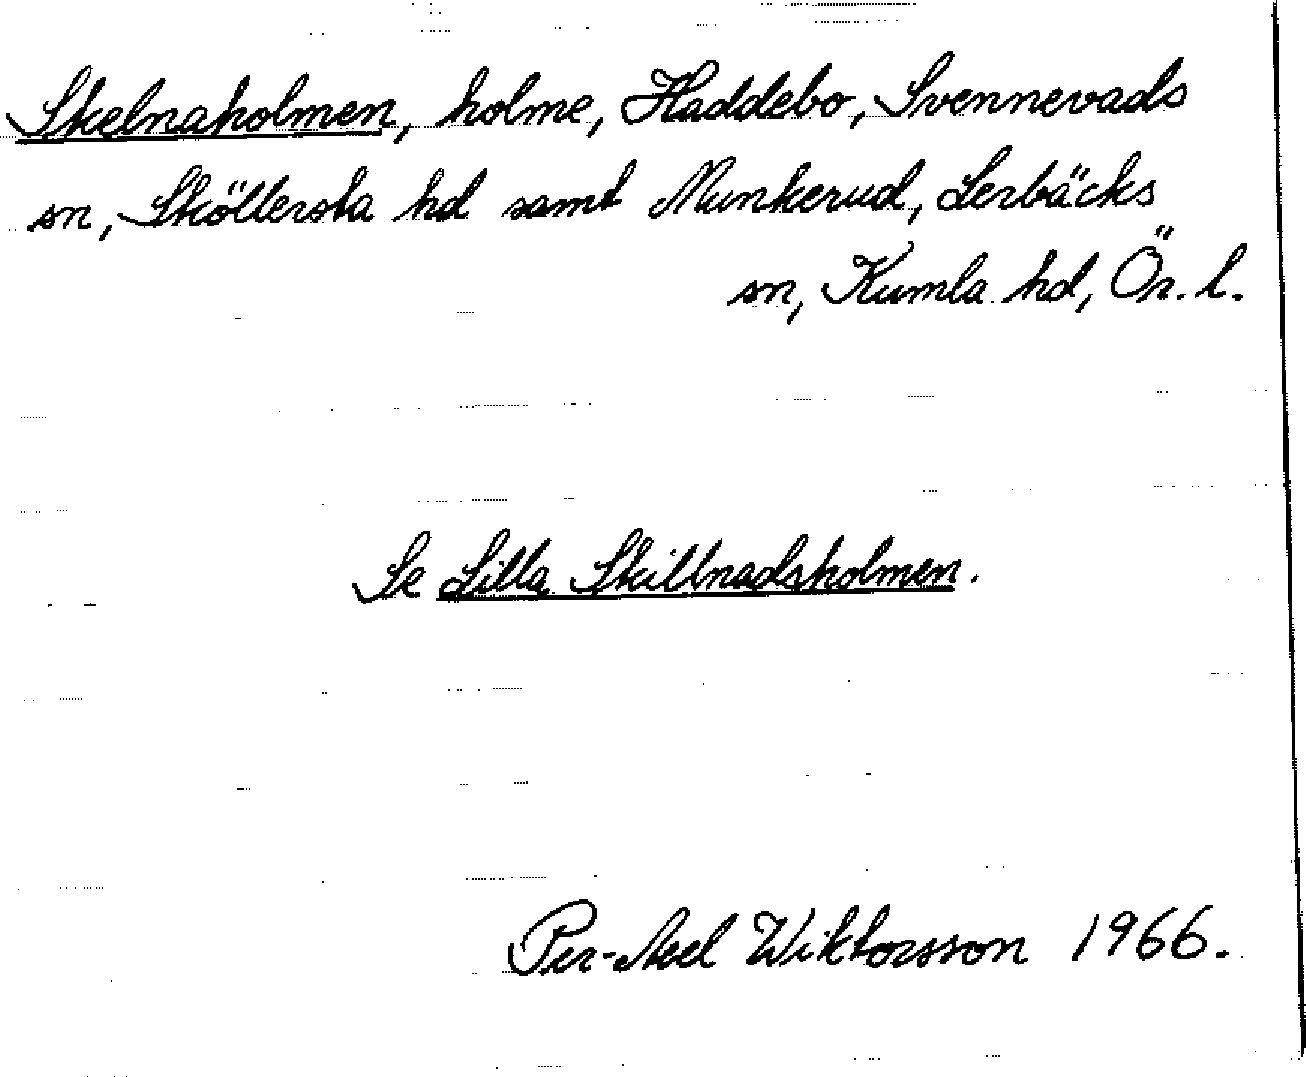 Skelnaholmen, holme, Haddebo, Svennevads
sn, Sköllersta hd samt Munkerud, Lerbäcks
sn, Kumla hd, Ör. l.
Se Lilla Skillnadsholmen.
Per-Axel Wiktorsson 1966.